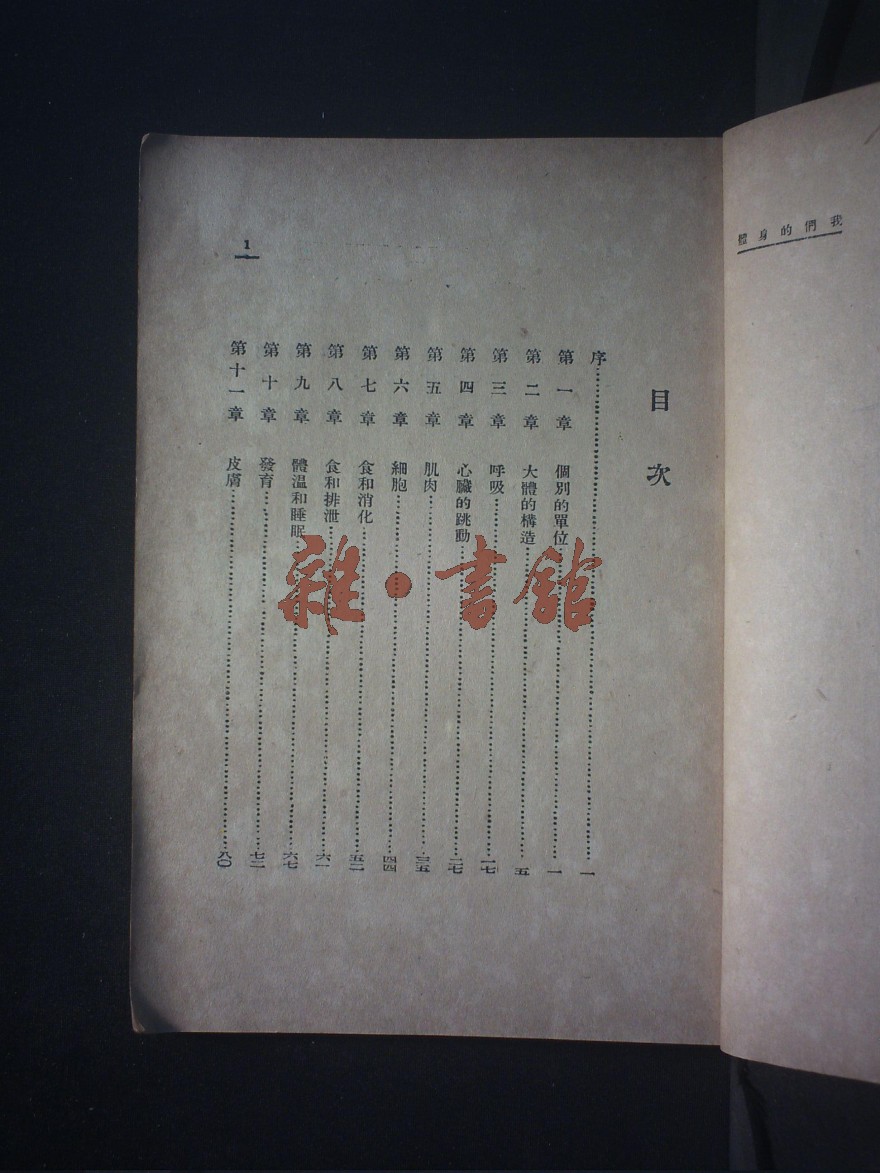 我們的身體
目次
序……一
第一章 個別的單位……一
第二章 大體的構造……五
第三章 呼吸……一七
第四章 心臟的跳動……二七
第五章 肌肉……三五
第六章 細胞……四四
第七章 食和消化……五二
第八章 食和排泄……六一
第九章 體溫和睡眠……六七
第十章 發育……七二
第十一章 皮膚……八〇
1
雜·書館